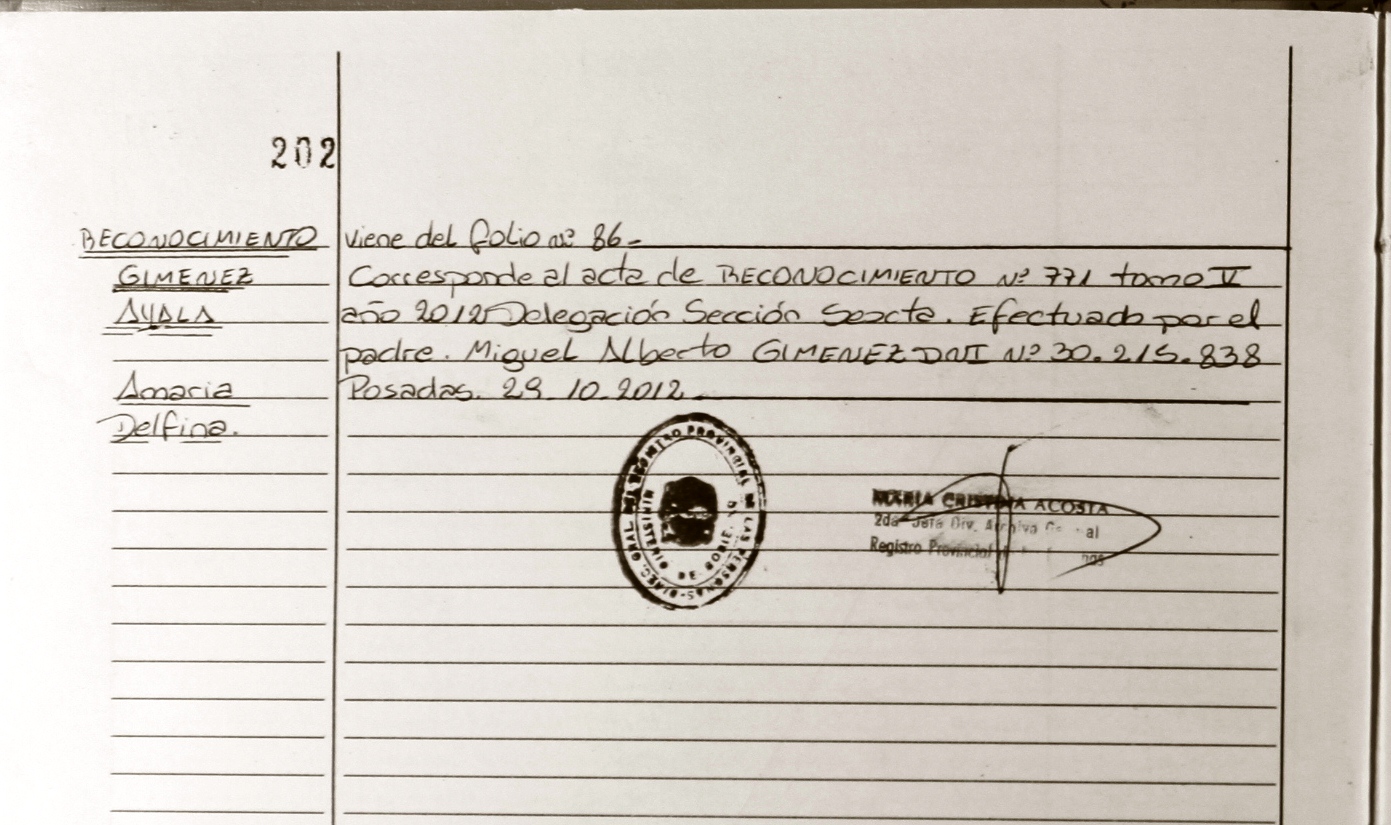 202
RECONOCIMIENTO
GIMENEZ
AYALA
Amaria
Delfina.
viene del folio nº 86-
Corresponde al acta de RECONOCIMIENTO Nº 771 tomo V
año 2012 Delegación Sección Sexta. Efectuado por el
padre. Miguel Alberto GIMENEZ DNI Nº 30.215.838
Posadas. 29.10.2012
DIREC. GRAL. DEL REGISTRO PROVINCIAL DE LAS PERSONAS
MINISTERIO DE GOBIE
MARIA CRISTINA ACOSTA
2da Jefa Div. Archivo General
Registro Provincial